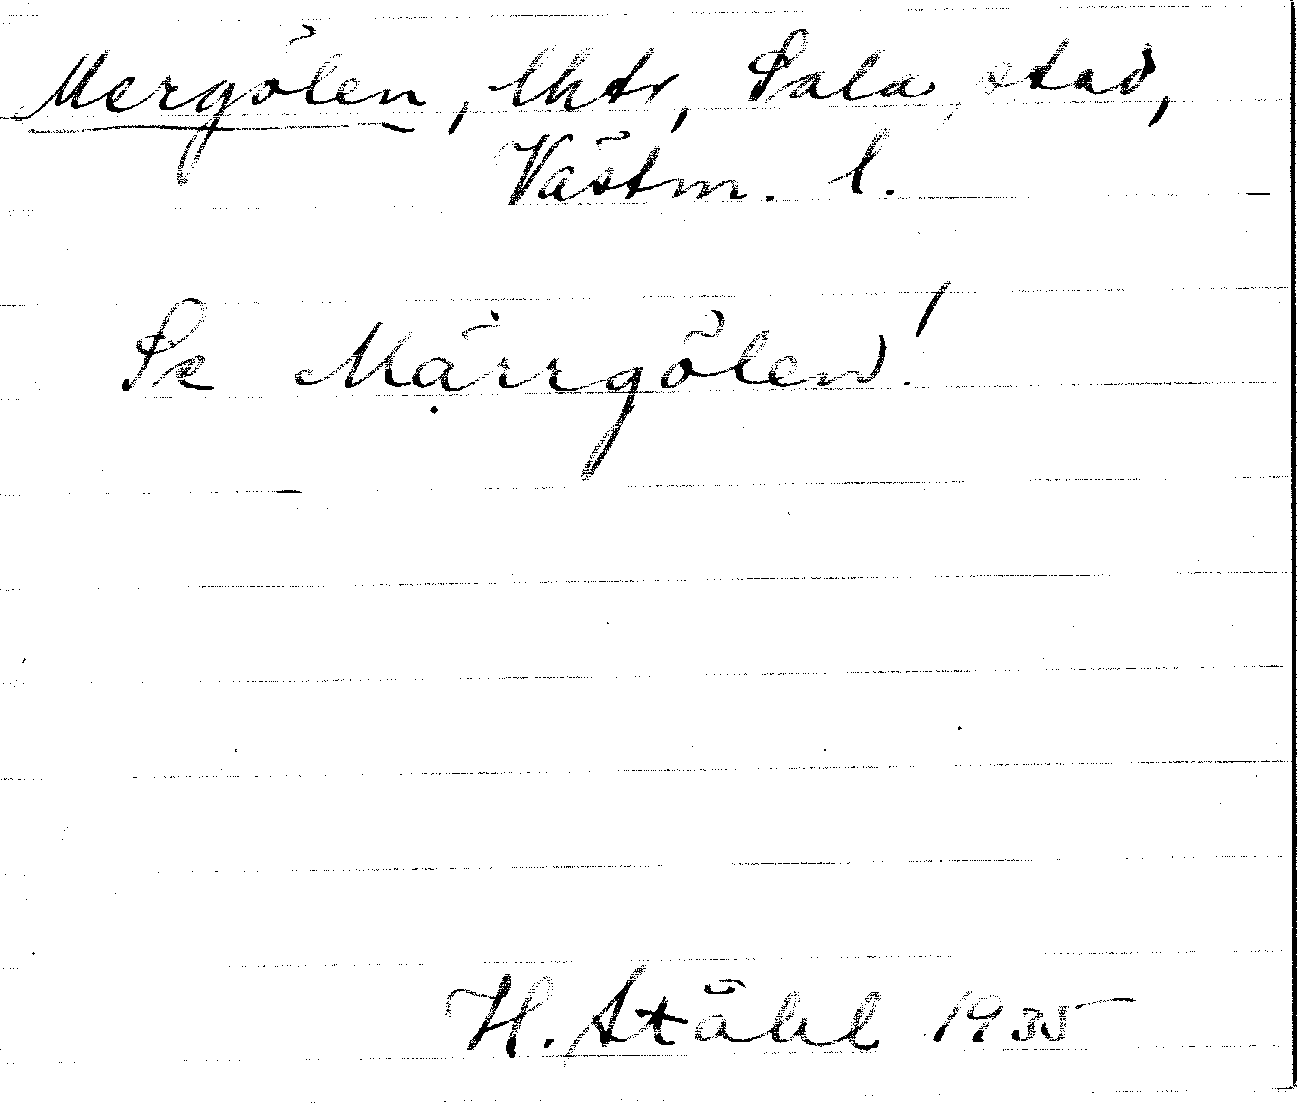 Mergölen, lhtr, Sala stad,
Västm. l.
Se Märrgölen!
H. Ståhl 1935